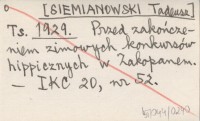 [SIEMIANOWSKI Tadeusz]
Ts. 1929. Przed zakończe-
niem zimowych konkursów
hippicznych w Zakopanem.
— IKC 20, nr 52.